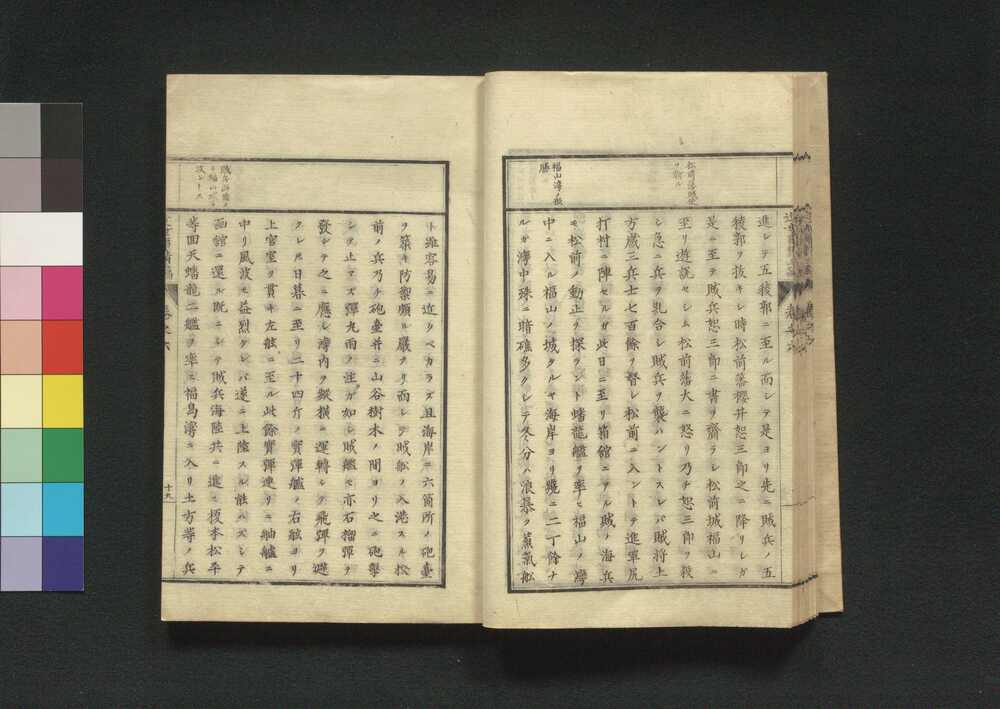 松前藩賊使
ヲ斬ル
福山湾ノ激
勝
進シテ五稜郭ニ至ル而シテ是ヨリ先ニ賊兵ノ五
稜郭ヲ抜キシ時松前藩櫻井恕三郎之ニ降リシガ
是ニ至テ賊兵恕三郎ニ書ヲ齎ラシ松前城福山ニ
至リ遊説セシム松前藩大ニ怒リ乃チ恕三郎ヲ殺
シ急ニ兵ヲ乳合シ賊兵ヲ襲ハントスレバ賊将土
方歳三兵士七百餘ヲ督シ松前ニ入ントテ進軍尻
打村ニ陣セルガ此日ニ至リ箱館ニアル賊ノ海兵
モ松前ノ動止ヲ探ラント蟠龍艦ヲ率ヒ福山ノ湾
中ニ入ル福山ノ城タルヤ海岸ヨリ纔ニ二丁餘ナ
ルガ湾中殊ニ暗礁多クシテ又分ハ浪暴ク蒸氣舩
ト雖容易ニ近リベカラズ且海岸ニ六箇所ノ砲臺
ヲ築キ防禦頗ル嚴ナリ而シテ賊舩ノ入港スルヤ松
前ノ兵乃チ砲臺并ニ山谷樹木ノ間ヨリ之ニ砲撃
シテ止マズ彈丸雨ノ注ガ如シ賊艦モ亦石榴彈ヲ
發シテ之ニ應シ湾内ヲ縦横ニ運轉シテ飛彈ヲ避
クレ𪜈日暮ニ至リ二十四斤ノ實彈艦ノ右舷ヨリ
上官室ヲ貫キ左舷ニ至ル此餘實彈連リニ舳艫ニ
中リ風波モ益烈ケレバ遂ニ上陸スル能ハズシテ
函館ニ還ル既ニシテ賊兵海陸共ニ進ミ榎本松平
等回天蟠龍二艦ヲ率ヒ福島湾ニ入リ土方等ノ兵
十九